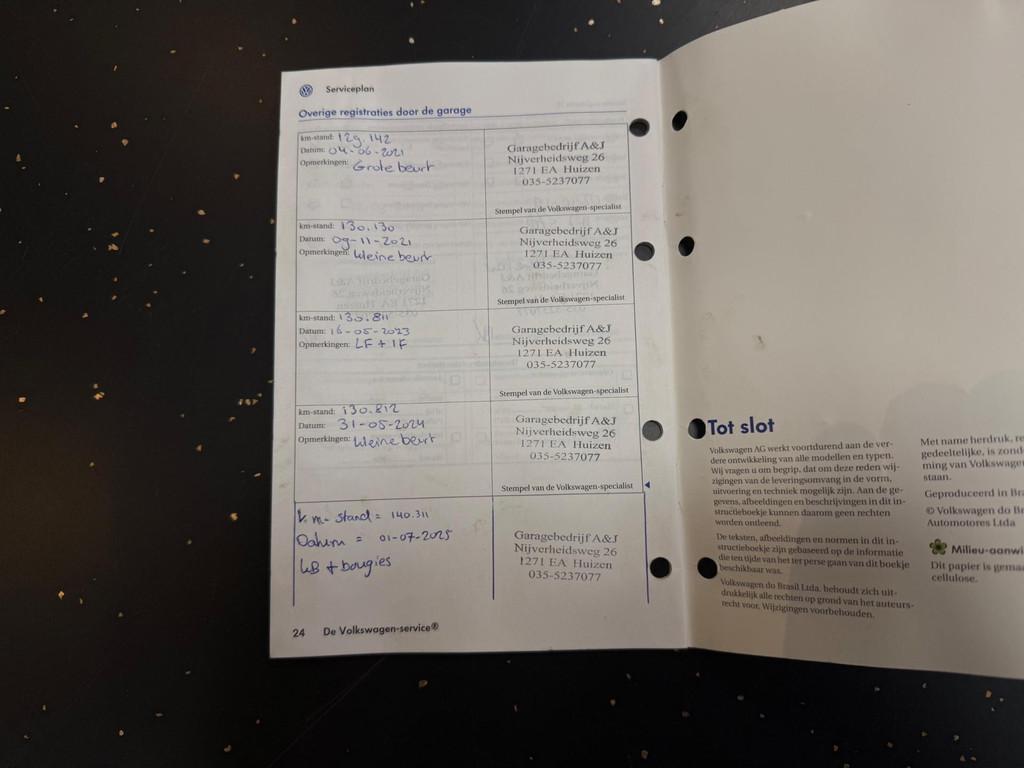 Serviceplan
Overige registraties door de garage
km-stand: 129.142
Datum: 04-06-2021
Opmerkingen: Grote beurt
Garagebedrijf A&J
Nijverheidsweg 26
1271 EA Huizen
035-5237077
Stempel van de Volkswagen-specialist
km-stand: 130.130
Datum: 09-11-2021
Opmerkingen: kleine beurt
Garagebedrijf A&J
Nijverheidsweg 26
1271 EA Huizen
035-5237077
Stempel van de Volkswagen-specialist
km-stand: 130.811
Datum: 16-05-2023
Opmerkingen: LF + IF
Garagebedrijf A&J
Nijverheidsweg 26
1271 EA Huizen
035-5237077
Stempel van de Volkswagen-specialist
km-stand: 130.812
Datum: 31-05-2024
Opmerkingen: kleine beurt
Garagebedrijf A&J
Nijverheidsweg 26
1271 EA Huizen
035-5237077
Stempel van de Volkswagen-specialist
km-stand = 140.311
Datum = 01-07-2025
KB + bougies
Garagebedrijf A&J
Nijverheidsweg 26
1271 EA Huizen
035-5237077
24 De Volkswagen-service®
Tot slot
Volkswagen AG werkt voortdurend aan de ver-
dere ontwikkeling van alle modellen en typen.
Wij vragen u om begrip, dat om deze reden wij-
zigingen van de leveringsomvang in de vorm,
uitvoering en techniek mogelijk zijn. Aan de ge-
gevens, afbeeldingen en beschrijvingen in dit in-
structieboekje kunnen daarom geen rechten
worden ontleend.
De teksten, afbeeldingen en normen in dit in-
structieboekje zijn gebaseerd op de informatie
die ten tijde van het ter perse gaan van dit boekje
beschikbaar was.
Volkswagen do Brasil Ltda. behoudt zich uit-
drukkelijk alle rechten op grond van het auteurs-
recht voor. Wijzigingen voorbehouden.
Met name herdruk, re
gedeeltelijke, is zond
ming van Volkswagen
staan.
Geproduceerd in Bra
© Volkswagen do Br
Automotores Ltda
Milieu-aanwi
Dit papier is gemaa
cellulose.